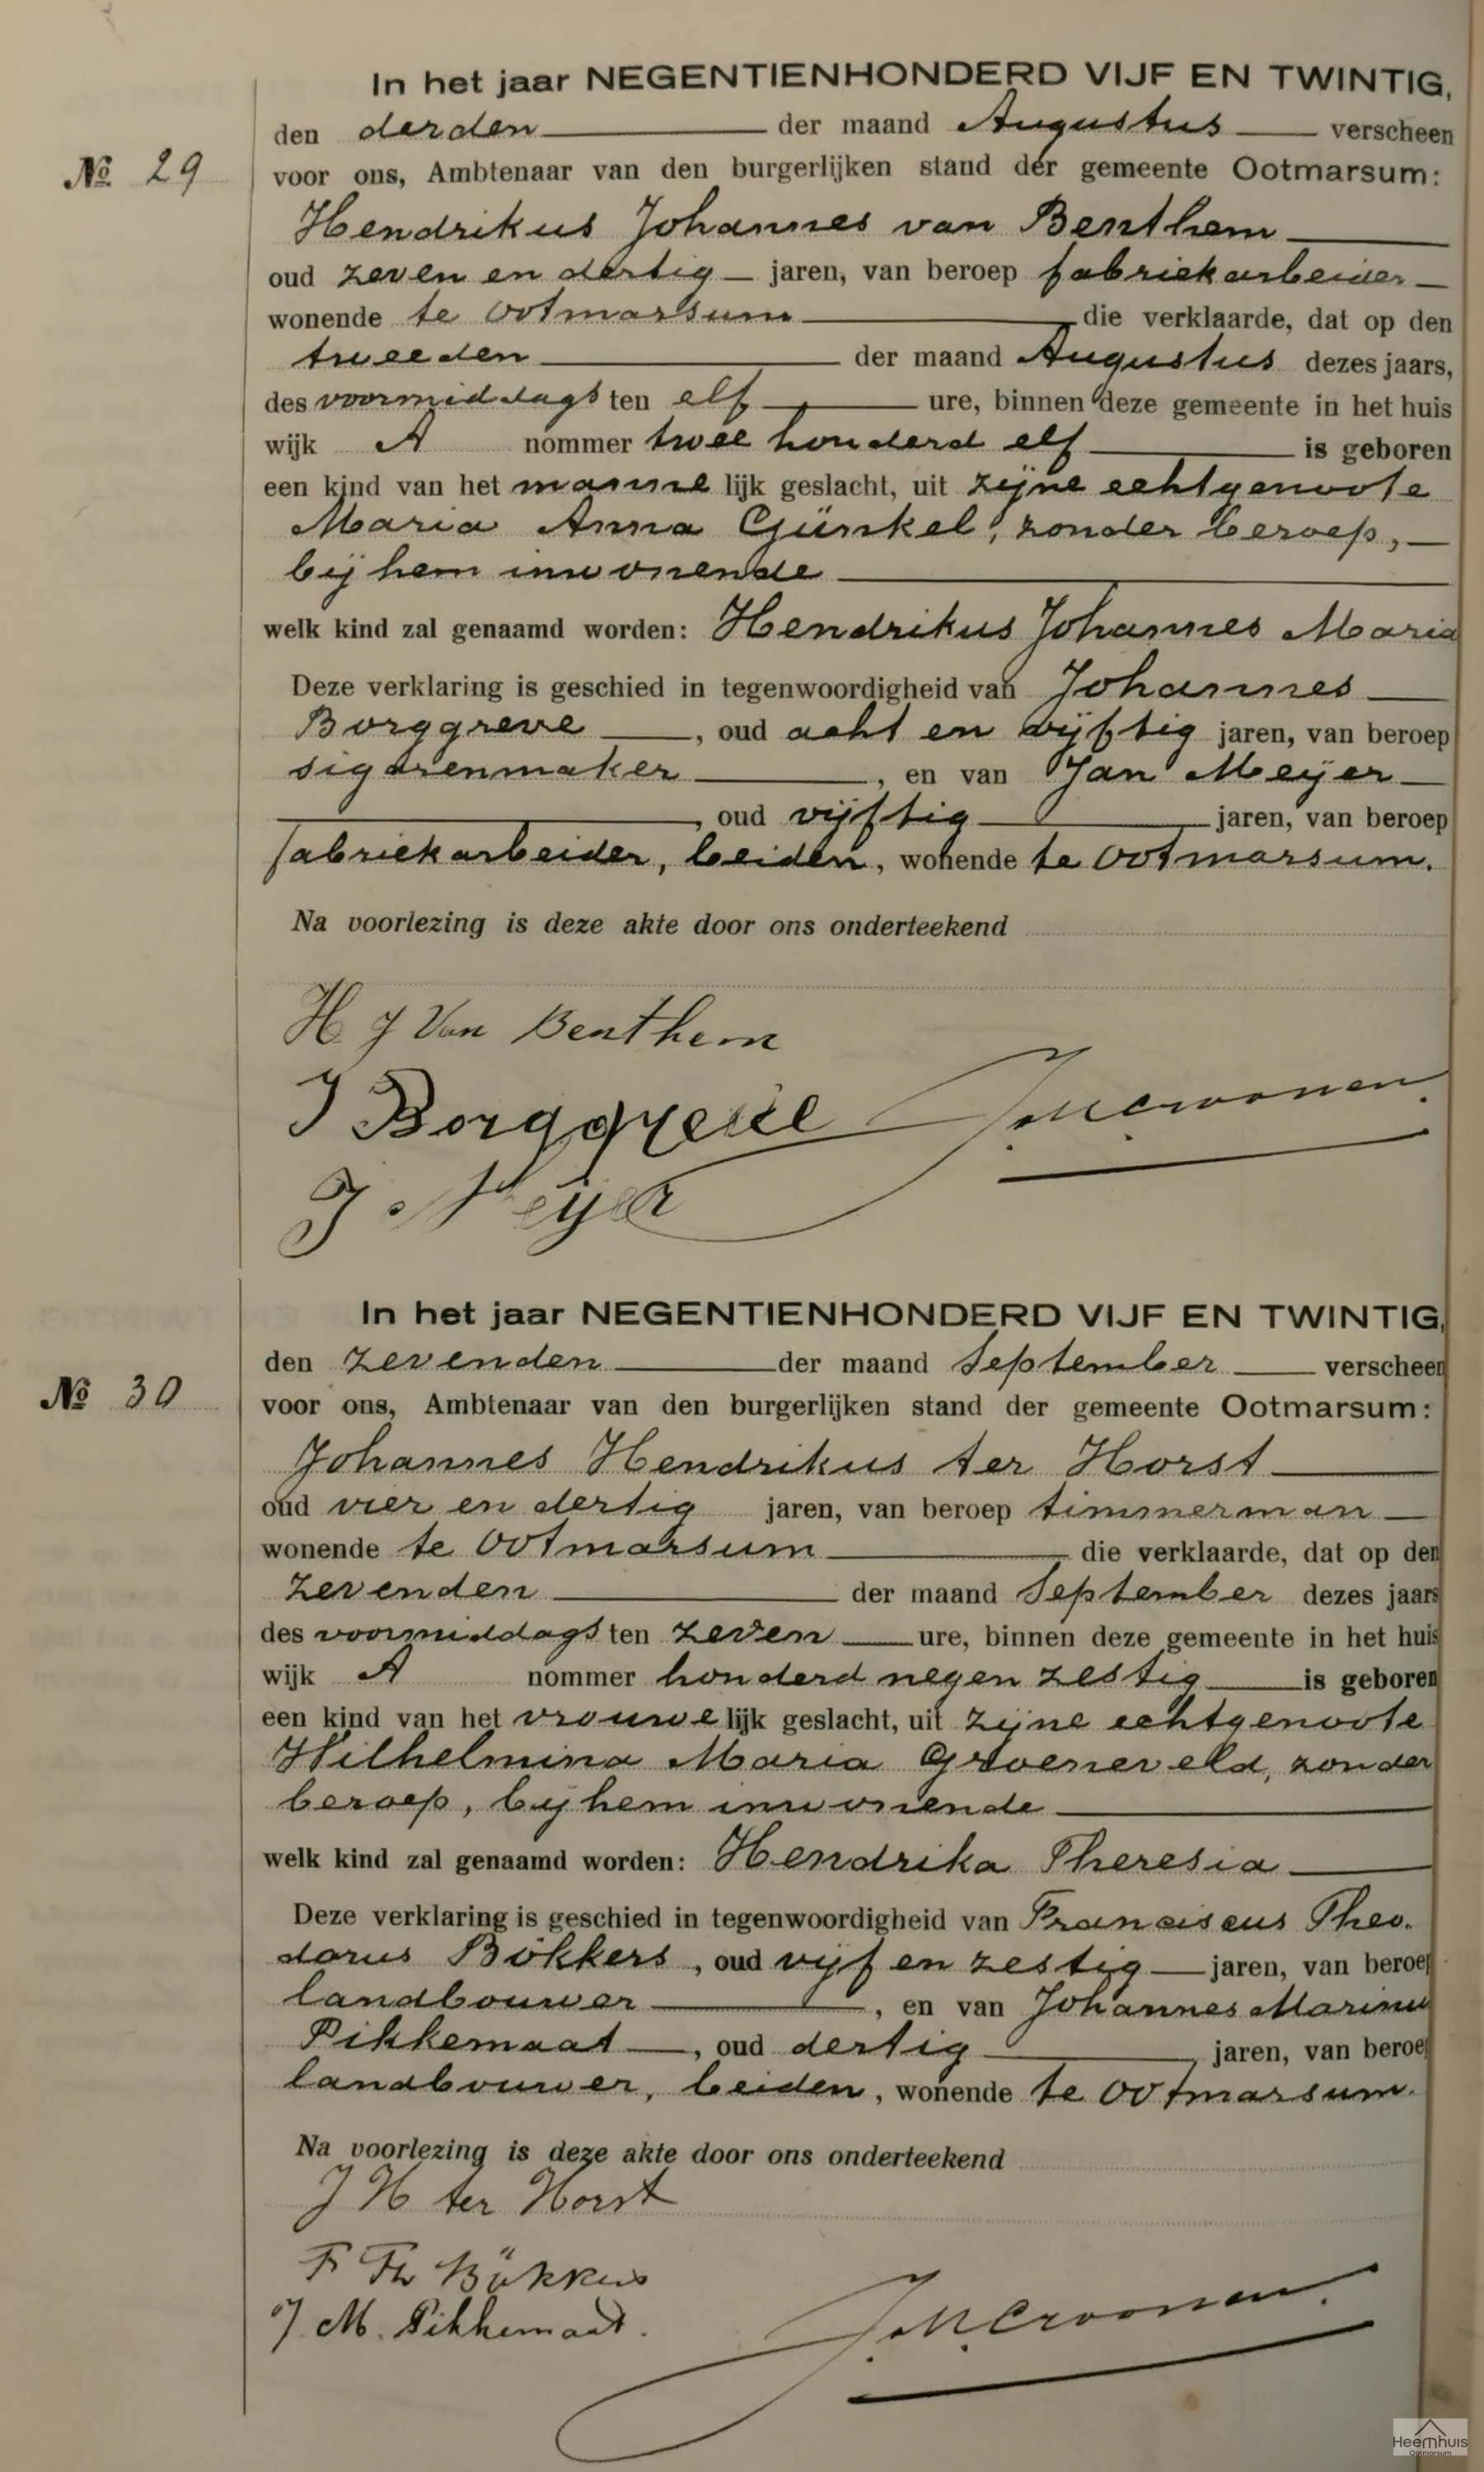 In het jaar NEGENTIENHONDERD VIJF EN TWINTIG,
den derden der maand Augustus verscheen
No 29
voor ons, Ambtenaar van den burgerlijken stand der gemeente Ootmarsum:
Hendrikus Johannes van Benthem
oud zeven en dertig jaren, van beroep fabriekarbeider
wonende te Ootmarsum die verklaarde, dat op den
tweeden der maand Augustus dezes jaars,
des voormiddags ten elf ure, binnen deze gemeente in het huis
wijk A nommer twee honderd elf is geboren
een kind van het mannelijk geslacht, uit zijne echtgenoote
Maria Anna Günkel, zonder beroep,
bij hem inwonende
welk kind zal genaamd worden: Hendrikus Johannes Maria
Deze verklaring is geschied in tegenwoordigheid van Johannes
Borggreve, oud acht en vijftig jaren, van beroep
sigarenmaker, en van Jan Meyer
, oud vijftig jaren, van beroep
fabriekarbeider, beiden, wonende te Ootmarsum.
Na voorlezing is deze akte door ons onderteekend
H J Van Benthem
J Borggreve
J Meyer
In het jaar NEGENTIENHONDERD VIJF EN TWINTIG,
den zevenden der maand September verscheen
No 30
voor ons, Ambtenaar van den burgerlijken stand der gemeente Ootmarsum:
Johannes Hendrikus ter Horst
oud vier en dertig jaren, van beroep timmerman
wonende te Ootmarsum die verklaarde, dat op den
zevenden der maand September dezes jaars
des voormiddags ten zeven ure, binnen deze gemeente in het huis
wijk A nommer honderd negen zestig is geboren
een kind van het vrouwelijk geslacht, uit zijne echtgenoote
Wilhelmina Maria Groeneveld, zonder
beroep, bij hem inwonende
welk kind zal genaamd worden: Hendrika Theresia
Deze verklaring is geschied in tegenwoordigheid van Franciscus Theo-
dorus Bökkers, oud vijf en zestig jaren, van beroep
landbouwer, en van Johannes Marinus
Pikkemaat, oud dertig jaren, van beroep
landbouwer, beiden, wonende te Ootmarsum.
Na voorlezing is deze akte door ons onderteekend
J H ter Horst
F Th Bökkers
J. M. Pikkemaat.
Heemhuis
Ootmarsum